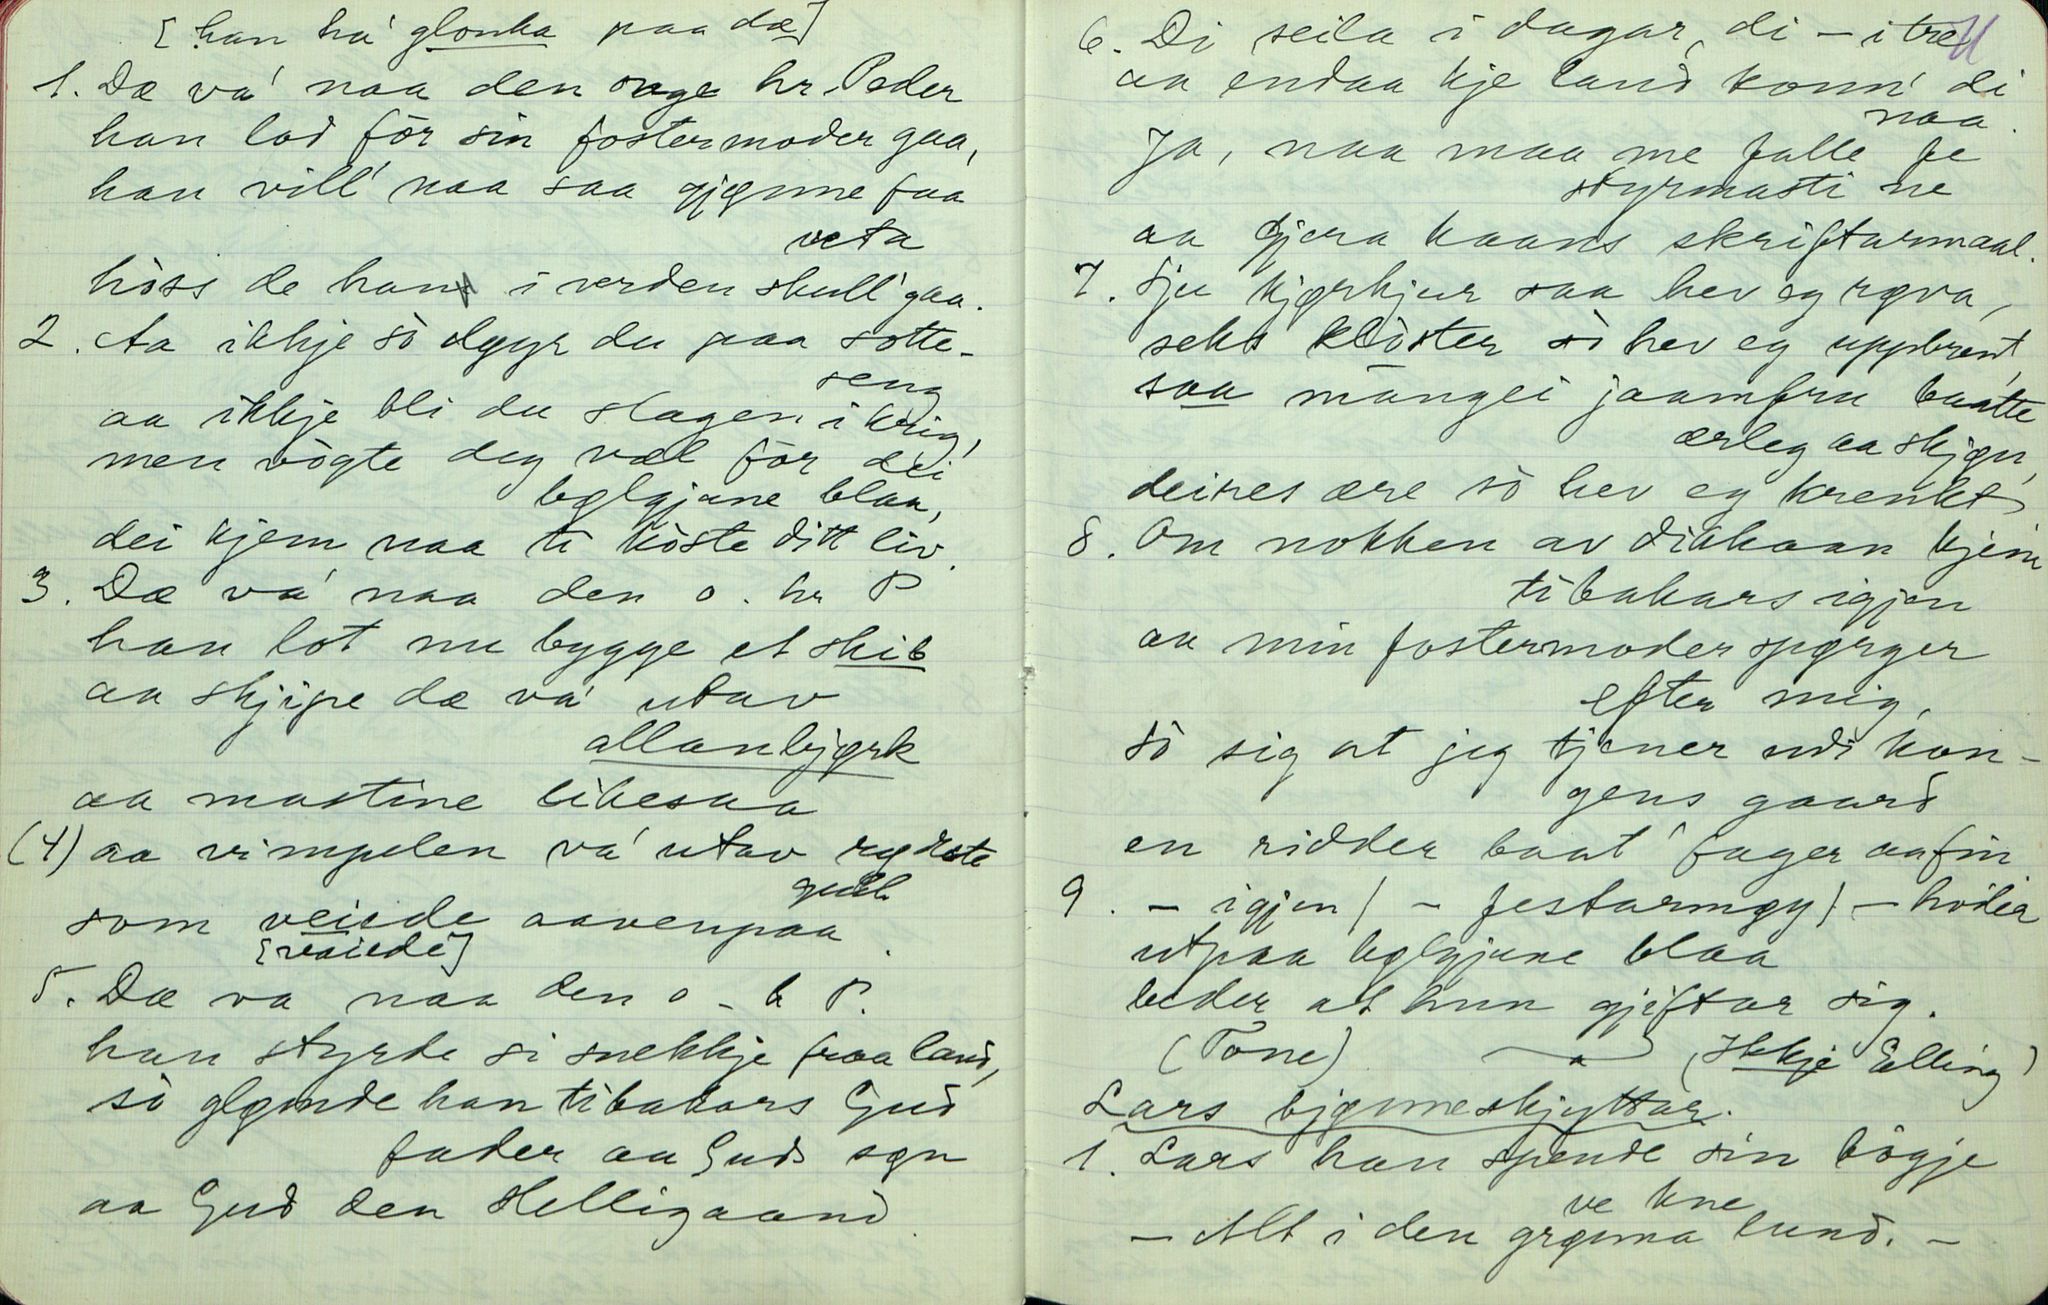 [han ha' glonka paa dæ]
1. Dæ va' naa den onge hr. Peder
han lod før sin fostermoder gaa,
han vill' naa saa gjønne faa
veta
hòss de han i verden skull' gaa.
2. Aa ikkje sò døyr du paa sotte-
seng
aa ikkje bli du slagen i krig,
men vògte deg væl før dei
bølgjune blaa,
dei kjem naa ti kòste ditt liv.
3. Dæ va' naa den o. hr P
han lot nu bygge et skib
aa skjipe dæ va' utav
allanbjørk
aa mastine likesaa
(4) aa vimpelen va' utav rødeste
guld
som veiede aavenpaa.
[vaiede]
5. Dæ va naa den o - h P.
han styrde si snekkje fraa land,
sò glømde han tibakars Gud
fader aa Guds søn
aa Gud den Helligaand
6. Di seila i dagar, di - i tre
aa endaa kje land konn' di
naa.
Ja, naa maa me falle fe
styrmasti ne
aa gjera haans skriftarmaal.
7. Sju kjørkjur saa hev eg røva,
seks klòster sò hev eg uppbrent,
saa mangei jaamfru baatte
ærleg aa skjøn,
deires ære sò hev eg krenkt
8. Om nokken av dikkaan kjem
tibakars igjen
aa min fostermoder spørger
efter mig,
sò sig at jeg tjener udi kon-
gens gaard
en ridder baat' fager aa fin
9. - igjen / - festarmøy / - hvila
utpaa bølgjune blaa
beder at hun gjiftar sig.
(Tone) (Ikkje Elling)
Lars bjønneskjyttar.
1. Lars han spende sin bògje
ve kne
- Alt i den grøna lund. -